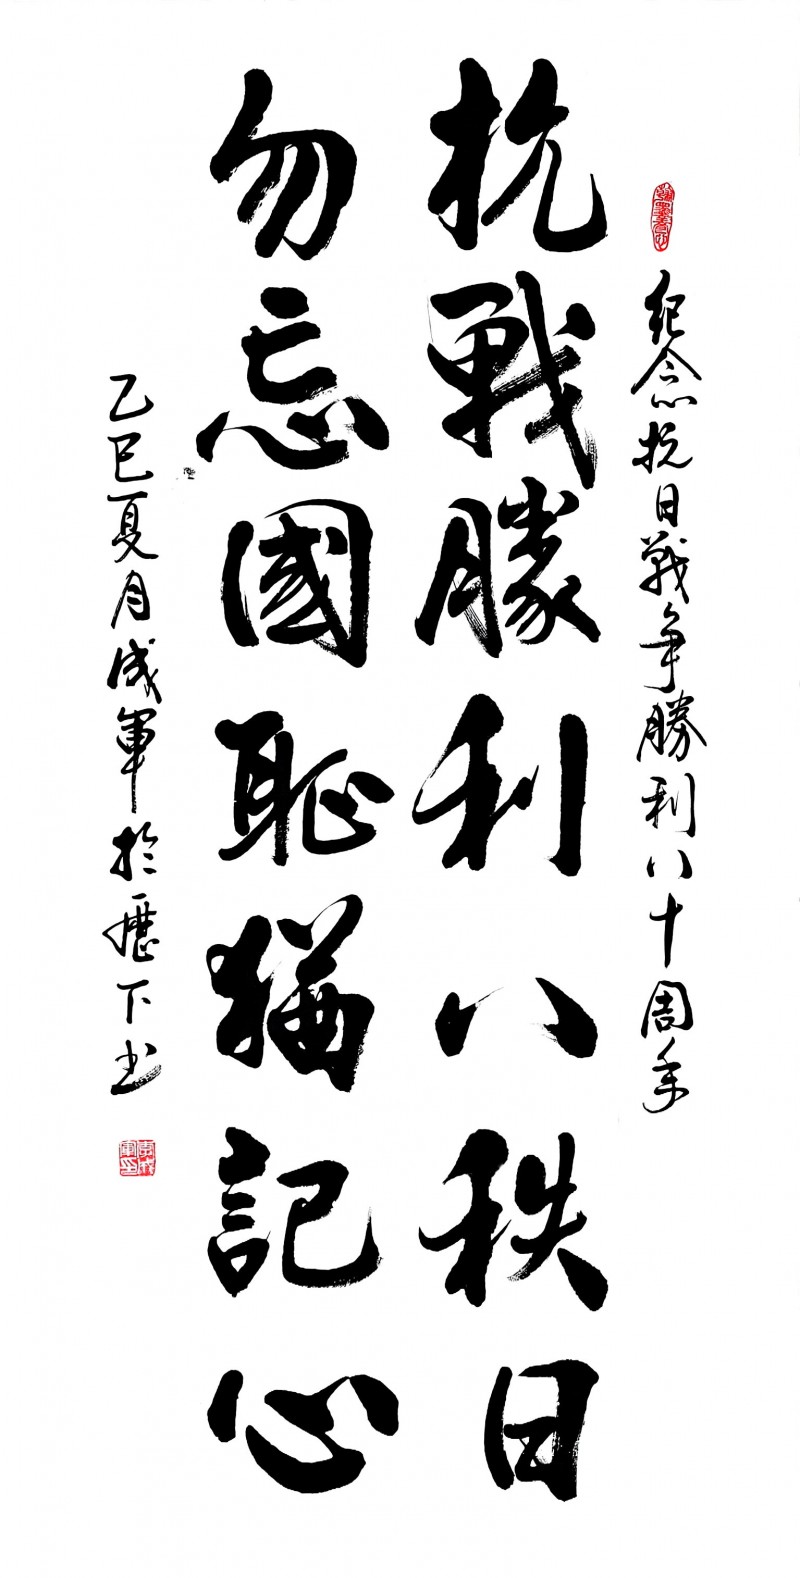 紀念抗日戰争勝利八十周年
抗戰勝利八秩日
勿忘國恥猶記心
乙巳夏月成軍於歷下书